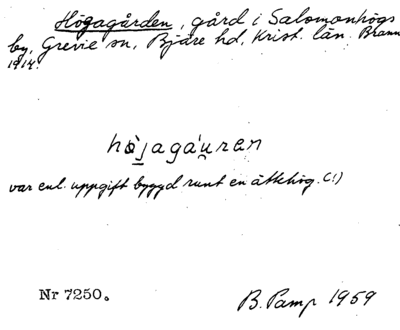 Högagården, gård i Salomonhögs
by, Grevie sn, Bjäre hd, Krist. län. Brann
1914.
hö̀jagáu̯ren
var enl. uppgift byggd runt en ätthög. (!)
Nr 7250.
B. Pamp 1959